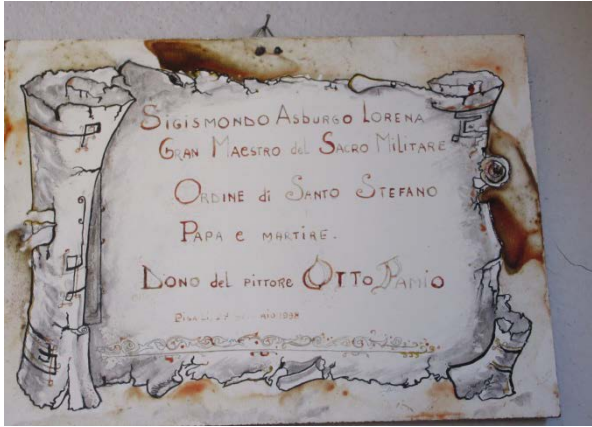 Sigismondo Asburgo Lorena
Gran Maestro del Sacro Militare
Ordine di Santo Stefano
Papa e martire.
Dono del pittore Otto Pamio